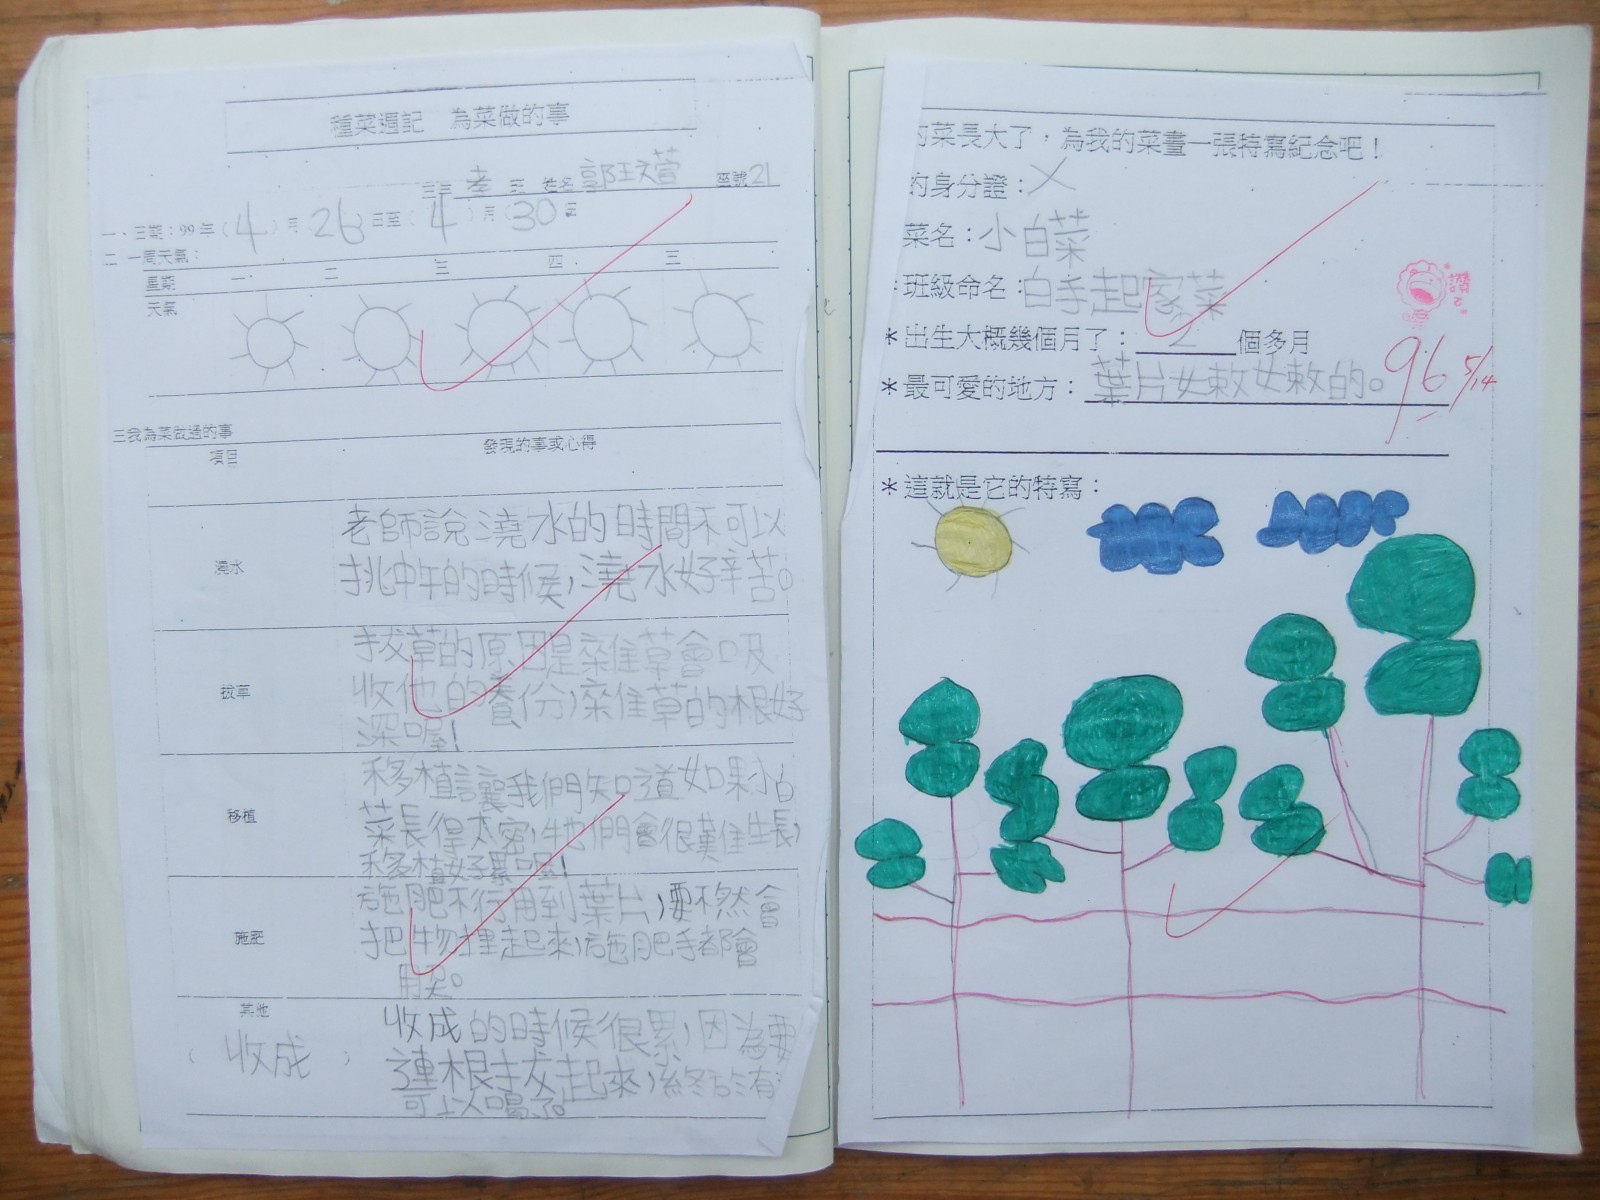 種菜週記　為菜做的事
三年 孝 班 姓名 郭玟萱 座號21
一、日期：99年（4）月（26）日至（4）月（30）日
二 一周天氣：
星期 一 二 三 四 三
天氣
三我為菜做過的事
項目 發現的事或心得
澆水
老師說澆水的時間不可以
挑中午的時候，澆水好辛苦。
拔草
拔草的原因是雜草會吸
收他的養份，雜草的根好
深喔！
移植
移植讓我們知道如果小白
菜長得太密，牠們會很難生長，
移植好累喔！
施肥
施肥不行用到葉片，要不然會
把物捏起來，施肥手都會
用
其他
（收成）
收成的時候很累，因為要
連根拔起來，終於有
可以喝了。
的菜長大了，為我的菜畫一張特寫紀念吧！
的身分證：X
菜名：小白菜
：班級命名：白手起家菜
＊出生大概幾個月了：2個多月
＊最可愛的地方：葉片女敕女敕的。
讚
96 5/14
＊這就是它的特寫：